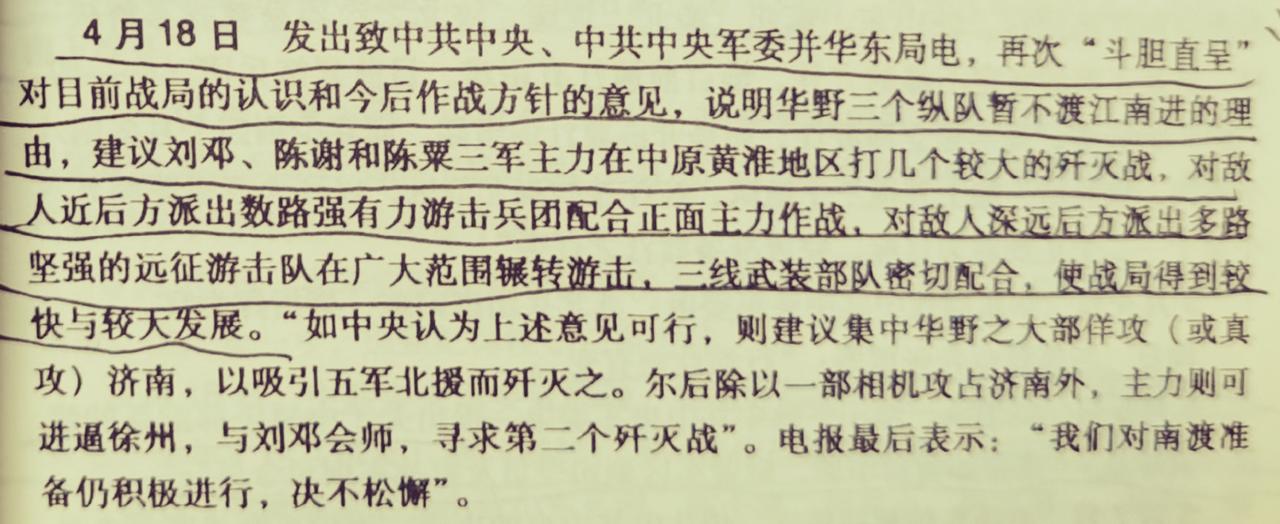 4月18日 发出致中共中央、中共中央军委并华东局电，再次“斗胆直呈”
对目前战局的认识和今后作战方针的意见，说明华野三个纵队暂不渡江南进的理
由，建议刘邓、陈谢和陈粟三军主力在中原黄淮地区打几个较大的歼灭战，对敌
人近后方派出数路强有力游击兵团配合正面主力作战，对敌人深远后方派出多路
坚强的远征游击队在广大范围辗转游击，三线武装部队密切配合，使战局得到较
快与较大发展。“如中央认为上述意见可行，则建议集中华野之大部佯攻（或真
攻）济南，以吸引五军北援而歼灭之。尔后除以一部相机攻占济南外，主力则可
进逼徐州，与刘邓会师，寻求第二个歼灭战”。电报最后表示：“我们对南渡准
备仍积极进行，决不松懈”。